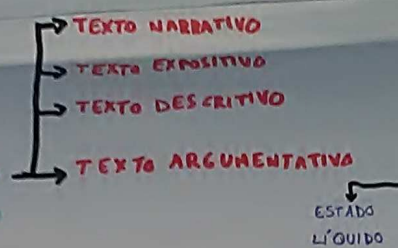 TEXTO NARRATIVO
TEXTO EXPOSITIVO
TEXTO DESCRITIVO
TEXTO ARGUMENTATIVO
ESTADO
LÍQUIDO